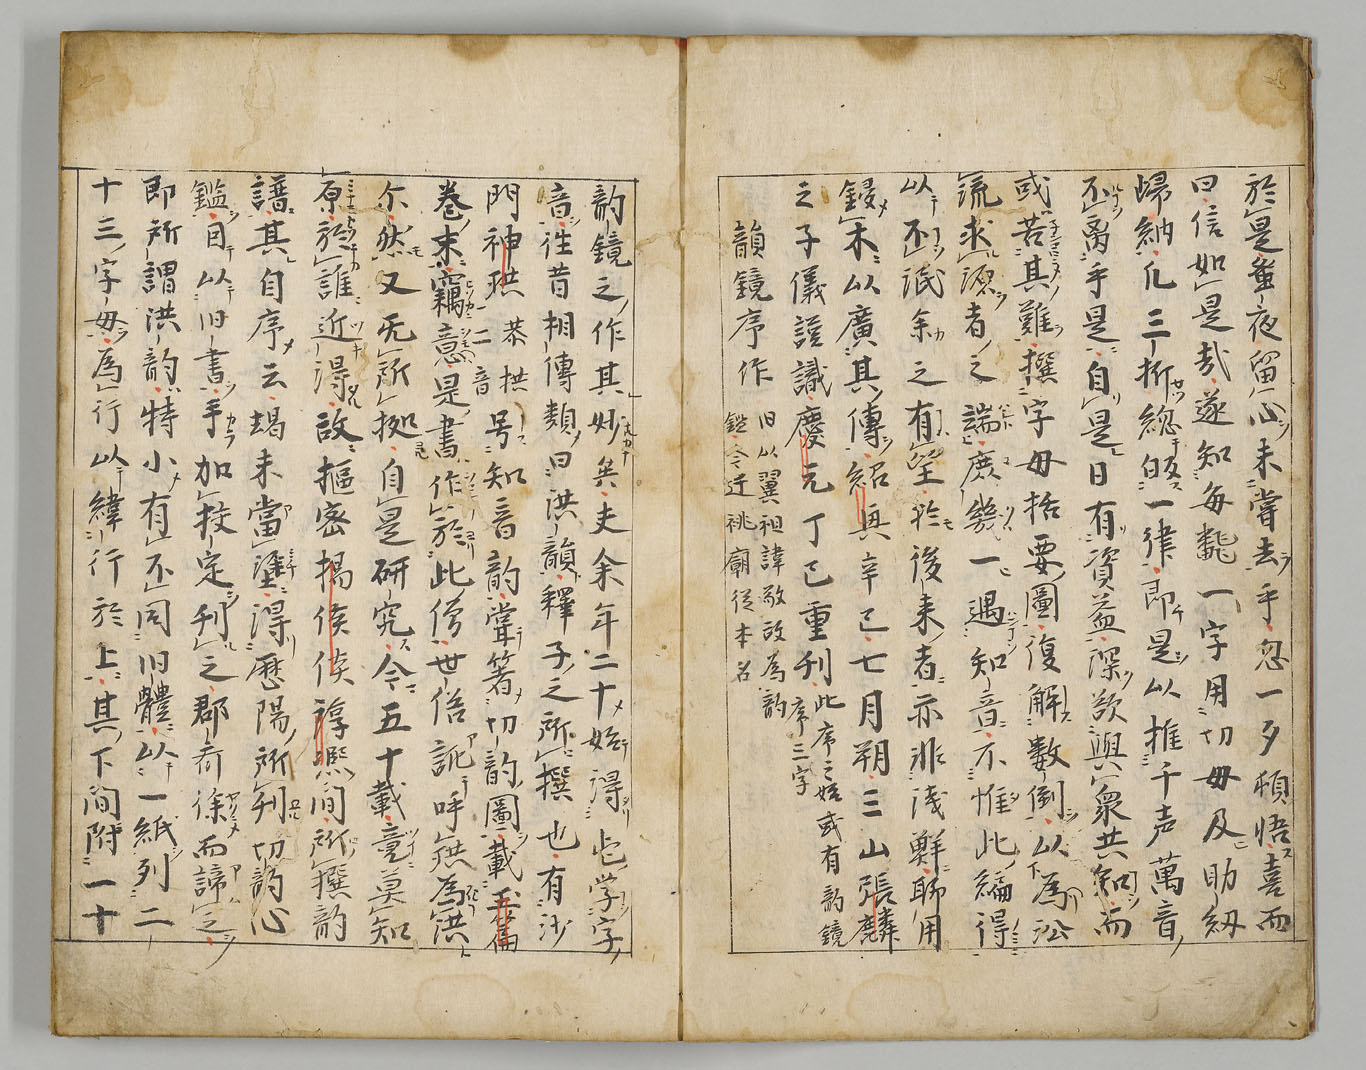 於是蚤夜留心未嘗去手忽一夕頓悟喜而
曰信如是哉遂知每翻一字用切母及助紐
歸納凡三折総皈一律即是以推千声萬音
不离乎是自是日有資益深欲與衆共知而
或苦其難撰字母括要圖復解數例以為沿
流求源者之端庶幾一遇知音不惟此編得
以不泯余之有望於後来者亦非浅鮮聊用
鋟木以廣其傳紹興辛巳七月朔三山張麟
之子儀謹識慶元丁巳重刋此序之始或有韵鏡
序三字
韻鏡序作
旧以翼祖諱敬故為韵
鑑今迁祧廟従本名
韵鏡之作其妙矣夫余年二十始得此学字
音徃昔相傳類曰洪韻釋子之所撰也有沙
門神珙恭拱二音号知音韵嘗著切韵圖載玉篇
卷末竊意是書作於此僧世俗訛呼珙為洪
尓然又无所拠自是研究今五十載竟莫知
原於誰近得故樞密楊侯倓淳熈间所撰韵
譜其自序云朅来當塗得歴陽所刋切韵心
鑑因以旧書手加挍定刋之郡斉徐而諦之
即所謂洪韵特小有不同旧體以一紙列二
十三字母為行以緯行於上其下间附一十